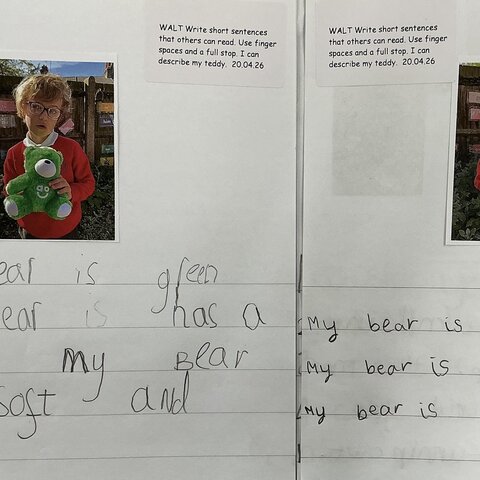 WALT Write short sentences
that others can read. Use finger
spaces and a full stop. I can
describe my teddy. 20.04.26
ear is green
ear is has a
my Bear
soft and
WALT Write short sentences
that others can read. Use finger
spaces and a full stop. I can
describe my teddy. 20.04.26
My bear is
My bear is
My bear is